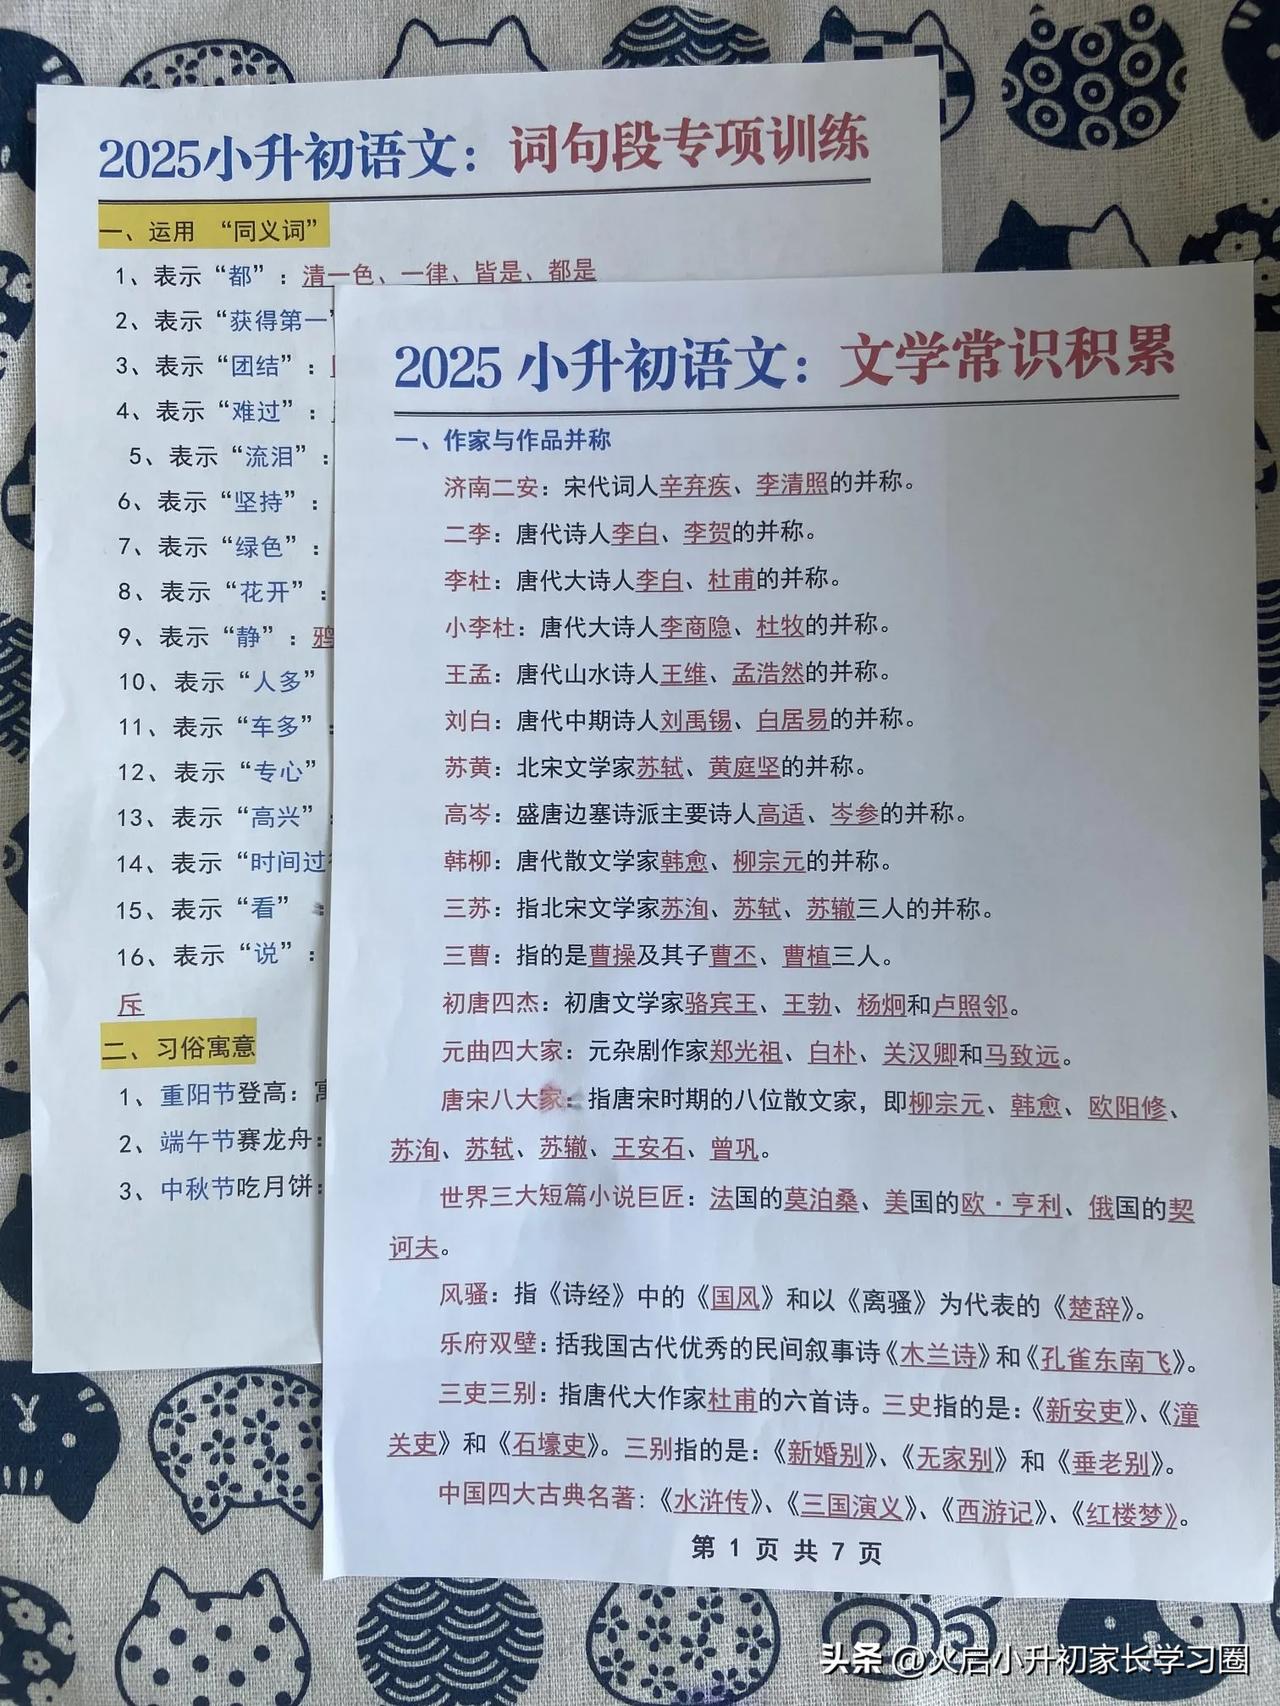 2025小升初语文：词句段专项训练
一、运用 “同义词”
1、表示“都”：清一色、一律、皆是、都是
2、表示“获得第一”
3、表示“团结”：
4、表示“难过”：
5、表示“流泪”：
6、表示“坚持”：
7、表示“绿色”：
8、表示“花开”：
9、表示“静”：鸦
10、表示“人多”
11、表示“车多”：
12、表示“专心”
13、表示“高兴”：
14、表示“时间过
15、表示“看” ：
16、表示“说”：
斥
二、习俗寓意
1、重阳节登高：寓
2、端午节赛龙舟：
3、中秋节吃月饼：
2025 小升初语文：文学常识积累
一、作家与作品并称
济南二安：宋代词人辛弃疾、李清照的并称。
二李：唐代诗人李白、李贺的并称。
李杜：唐代大诗人李白、杜甫的并称。
小李杜：唐代大诗人李商隐、杜牧的并称。
王孟：唐代山水诗人王维、孟浩然的并称。
刘白：唐代中期诗人刘禹锡、白居易的并称。
苏黄：北宋文学家苏轼、黄庭坚的并称。
高岑：盛唐边塞诗派主要诗人高适、岑参的并称。
韩柳：唐代散文学家韩愈、柳宗元的并称。
三苏：指北宋文学家苏洵、苏轼、苏辙三人的并称。
三曹：指的是曹操及其子曹丕、曹植三人。
初唐四杰：初唐文学家骆宾王、王勃、杨炯和卢照邻。
元曲四大家：元杂剧作家郑光祖、白朴、关汉卿和马致远。
唐宋八大家：指唐宋时期的八位散文家，即柳宗元、韩愈、欧阳修、
苏洵、苏轼、苏辙、王安石、曾巩。
世界三大短篇小说巨匠：法国的莫泊桑、美国的欧·亨利、俄国的契
诃夫。
风骚：指《诗经》中的《国风》和以《离骚》为代表的《楚辞》。
乐府双壁：括我国古代优秀的民间叙事诗《木兰诗》和《孔雀东南飞》。
三吏三别：指唐代大作家杜甫的六首诗。三史指的是：《新安吏》、《潼
关吏》和《石壕吏》。三别指的是：《新婚别》、《无家别》和《垂老别》。
中国四大古典名著：《水浒传》、《三国演义》、《西游记》、《红楼梦》。
第 1 页 共 7 页
头条 @火启小升初家长学习圈